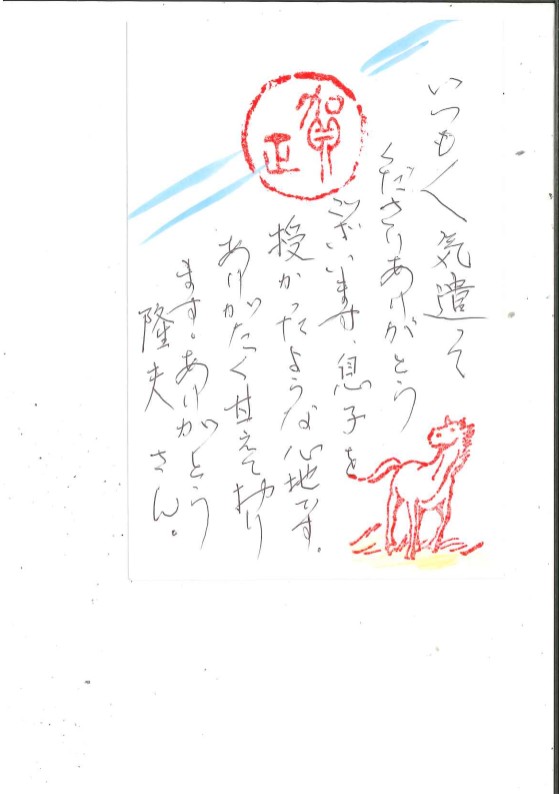 賀正
いつも〱気遣って
くださりありがとう
ございます、息子を
授かったような心地です。
ありがたく甘えて居り
ます。ありがとう
隆夫さん。